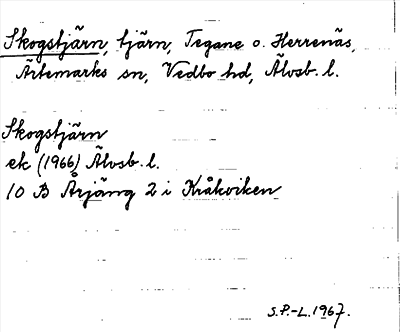 Skogstjärn, tjärn, Tegane o. Herrenäs,
Ärtemarks sn, Vedbo hd, Älvsb. l.
Skogstjärn
ek (1966) Älvsb. l.
10 B Årjäng 2 i Kråkviken
S.P.-L. 1967.